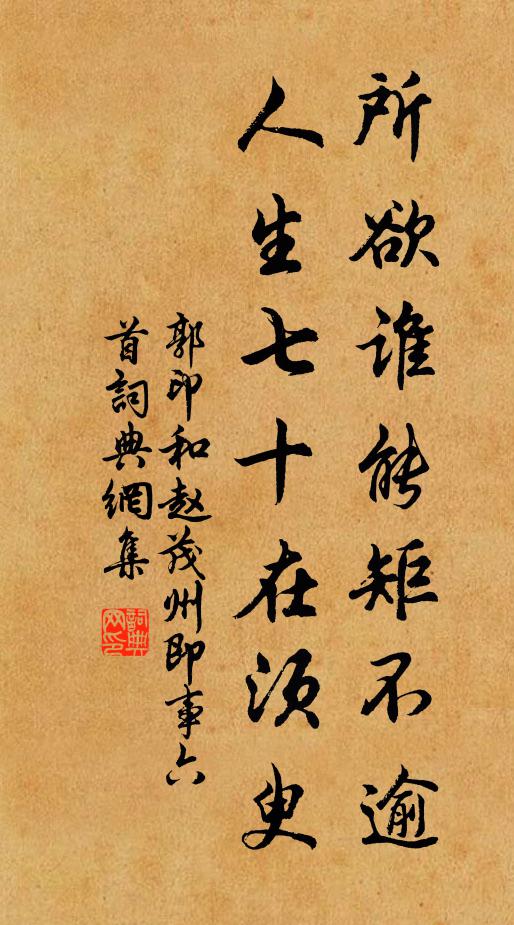 所欲谁能矩不逾
人生七十在须臾
郭印和赵茂州即事六
首詞典網集
詞典
网印